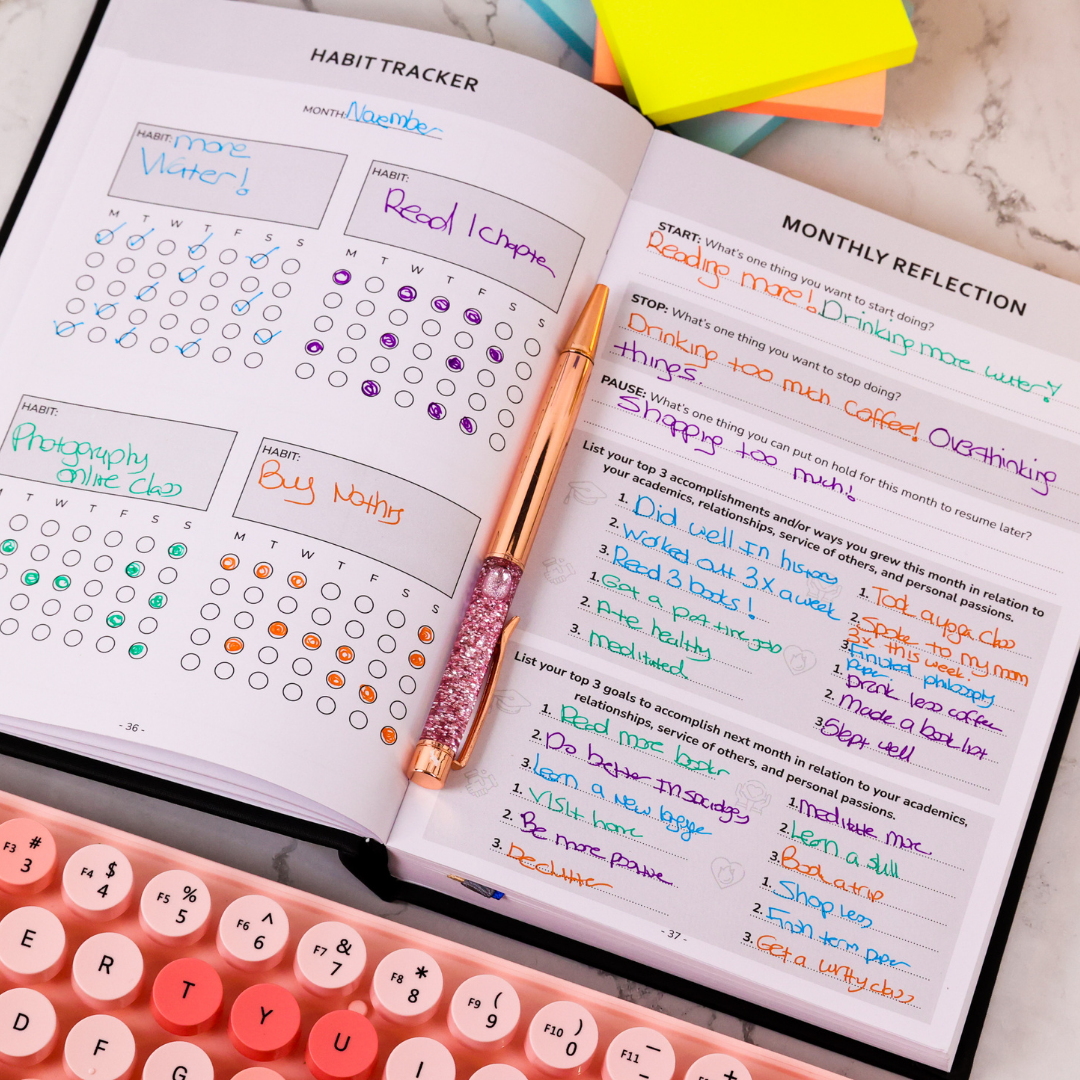 HABIT TRACKER
MONTH: November
HABIT: more
Water!
M T W T F S S
HABIT:
Read 1 chapter
M T W T F S S
HABIT:
Photography
online class
M T W T F S S
HABIT:
Buy Nothing
M T W T F S S
- 36 -
MONTHLY REFLECTION
START: What's one thing you want to start doing?
Reading more! Drinking more water!
STOP: What's one thing you want to stop doing?
Drinking too much coffee! Overthinking
things.
PAUSE: What's one thing you can put on hold for this month to resume later?
Shopping too much!
List your top 3 accomplishments and/or ways you grew this month in relation to
your academics, relationships, service of others, and personal passions.
1. Did well in history
2. Worked out 3x a week
3. Read 3 books!
1. Got a part time job
2. Ate healthy
3. Meditated.
1. Took a yoga class
2. Spoke to my mom
3x this week.
3. Finished philosophy
paper.
1. Drank less coffee
2. Made a book list
3. Slept well
List your top 3 goals to accomplish next month in relation to your academics,
relationships, service of others, and personal passions.
1. Read more books
2. Do better in sociology
3. Learn a new language
1. Visit home
2. Be more positive
3. Declutter
1. Meditate more
2. Learn a skill
3. Book a trip
1. Shop less
2. Finish term paper
3. Get a writing class
- 37 -
F3 # 3
F4 $ 4
F5 % 5
F6 ^ 6
F7 & 7
F8 * 8
F9 ( 9
F10 ) 0
F11 _ -
+
E R T Y U I
D F G